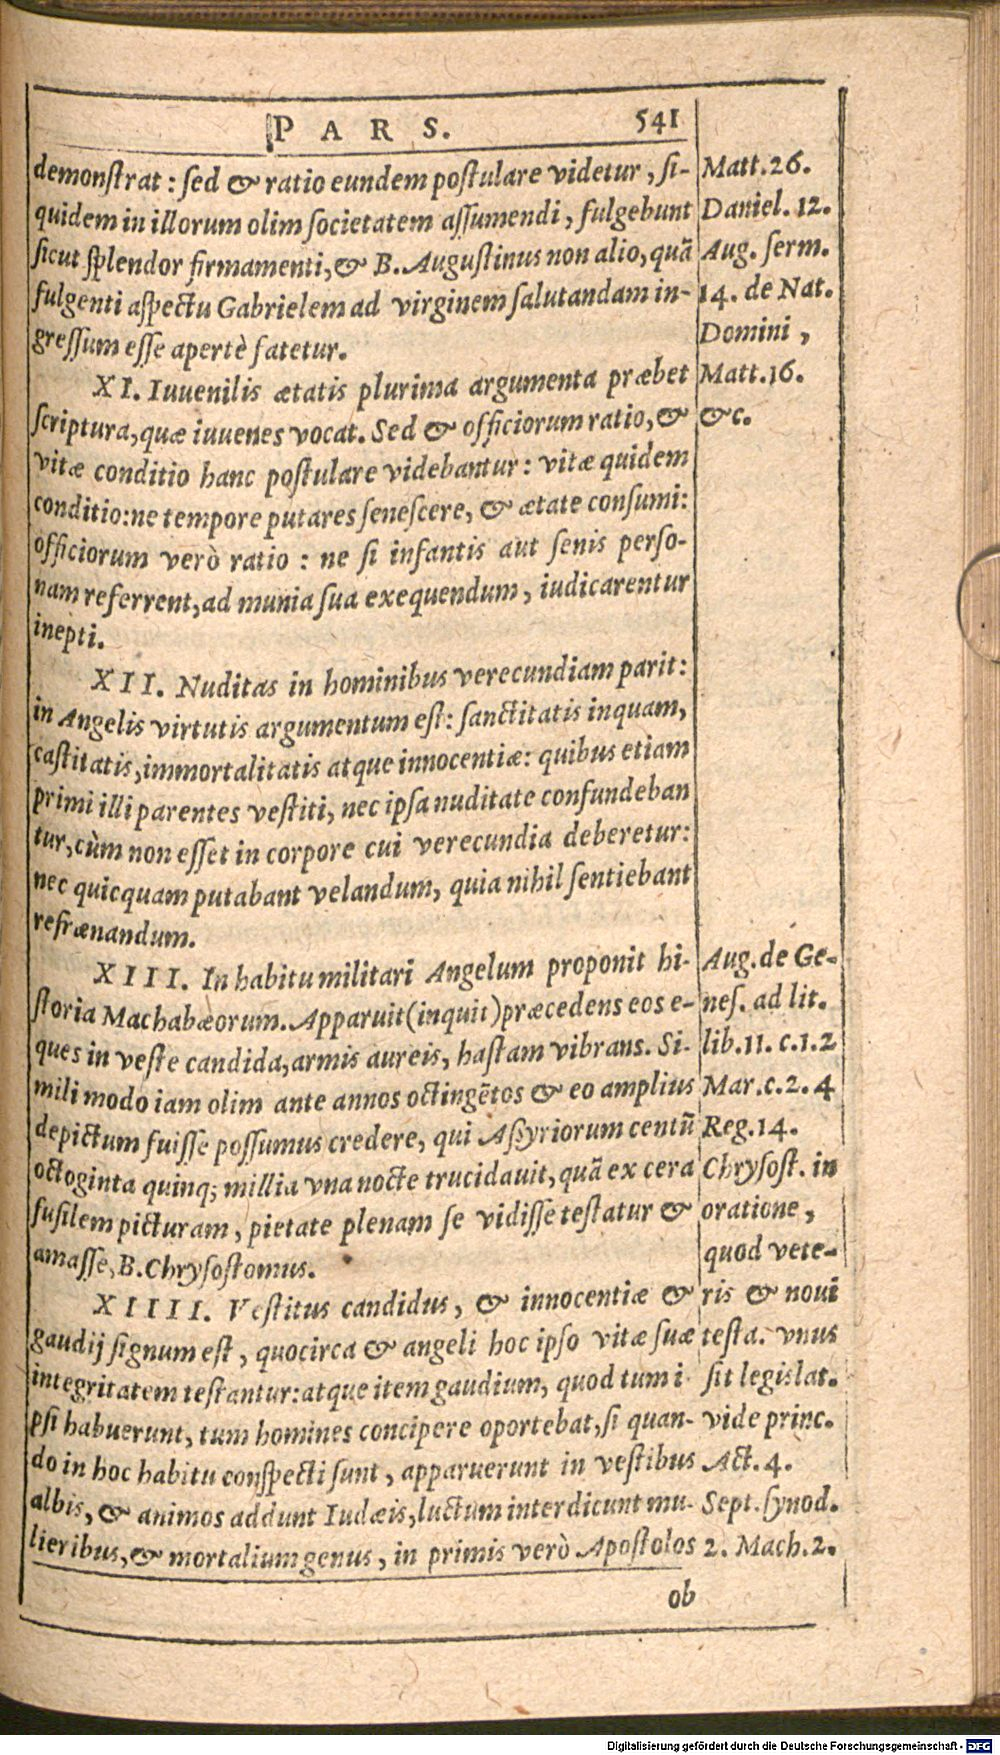 PARS. 541
demonſtrat: ſed & ratio eundem poſtulare videtur, ſi-
quidem in illorum olim ſocietatem aſſumendi, fulgebunt
ſicut ſplendor firmamenti, & B. Auguſtinus non alio, quã
fulgenti aſpectu Gabrielem ad virginem ſalutandam in-
greſſum eſſe apertè fatetur.
XI. Iuuenilis ætatis plurima argumenta præbet
ſcriptura, quæ iuuenes vocat. Sed & officiorum ratio, &
vitæ conditio hanc poſtulare videbantur: vitæ quidem
conditio: ne tempore putares ſeneſcere, & ætate conſumi:
officiorum verò ratio: ne ſi infantis aut ſenis perſo-
nam referrent, ad munia ſua exequendum, iudicarentur
inepti.
XII. Nuditas in hominibus verecundiam parit:
in Angelis virtutis argumentum eſt: ſanctitatis inquam,
caſtitatis, immortalitatis atque innocentiæ: quibus etiam
primi illi parentes veſtiti, nec ipſa nuditate confundeban
tur, cùm non eſſet in corpore cui verecundia deberetur:
nec quicquam putabant velandum, quia nihil ſentiebant
refrænandum.
XIII. In habitu militari Angelum proponit hi-
ſtoria Machabæorum. Apparuit (inquit) præcedens eos e-
ques in veſte candida, armis aureis, haſtam vibrans. Si-
mili modo iam olim ante annos octingẽtos & eo amplius
depictum fuiſſe poſſumus credere, qui Aſſyriorum centũ
octoginta quinq; millia vna nocte trucidauit, quã ex cera
fuſilem picturam, pietate plenam ſe vidiſſe teſtatur &
amaſſe, B. Chryſoſtomus.
XIIII. Veſtitus candidus, & innocentiæ &
gaudij ſignum eſt, quocirca & angeli hoc ipſo vitæ ſuæ
integritatem teſtantur: atque item gaudium, quod tum i
pſi habuerunt, tum homines concipere oportebat, ſi quan-
do in hoc habitu conſpecti ſunt, apparuerunt in veſtibus
albis, & animos addunt Iudæis, luctum interdicunt mu-
lieribus, & mortalium genus, in primis verò Apoſtolos
ob
Matt. 26.
Daniel. 12.
Aug. ſerm.
14. de Nat.
Domini,
Matt. 16.
&c.
Aug. de Ge-
neſ. ad lit.
lib. 11. c. 1. 2
Mar. c. 2. 4
Reg. 14.
Chryſoſt. in
oratione,
quod vete-
ris & noui
teſta. vnus
ſit legislat.
vide princ.
Act. 4.
Sept. ſynod.
2. Mach. 2.
Digitalisierung gefördert durch die Deutsche Forschungsgemeinschaft - DFG